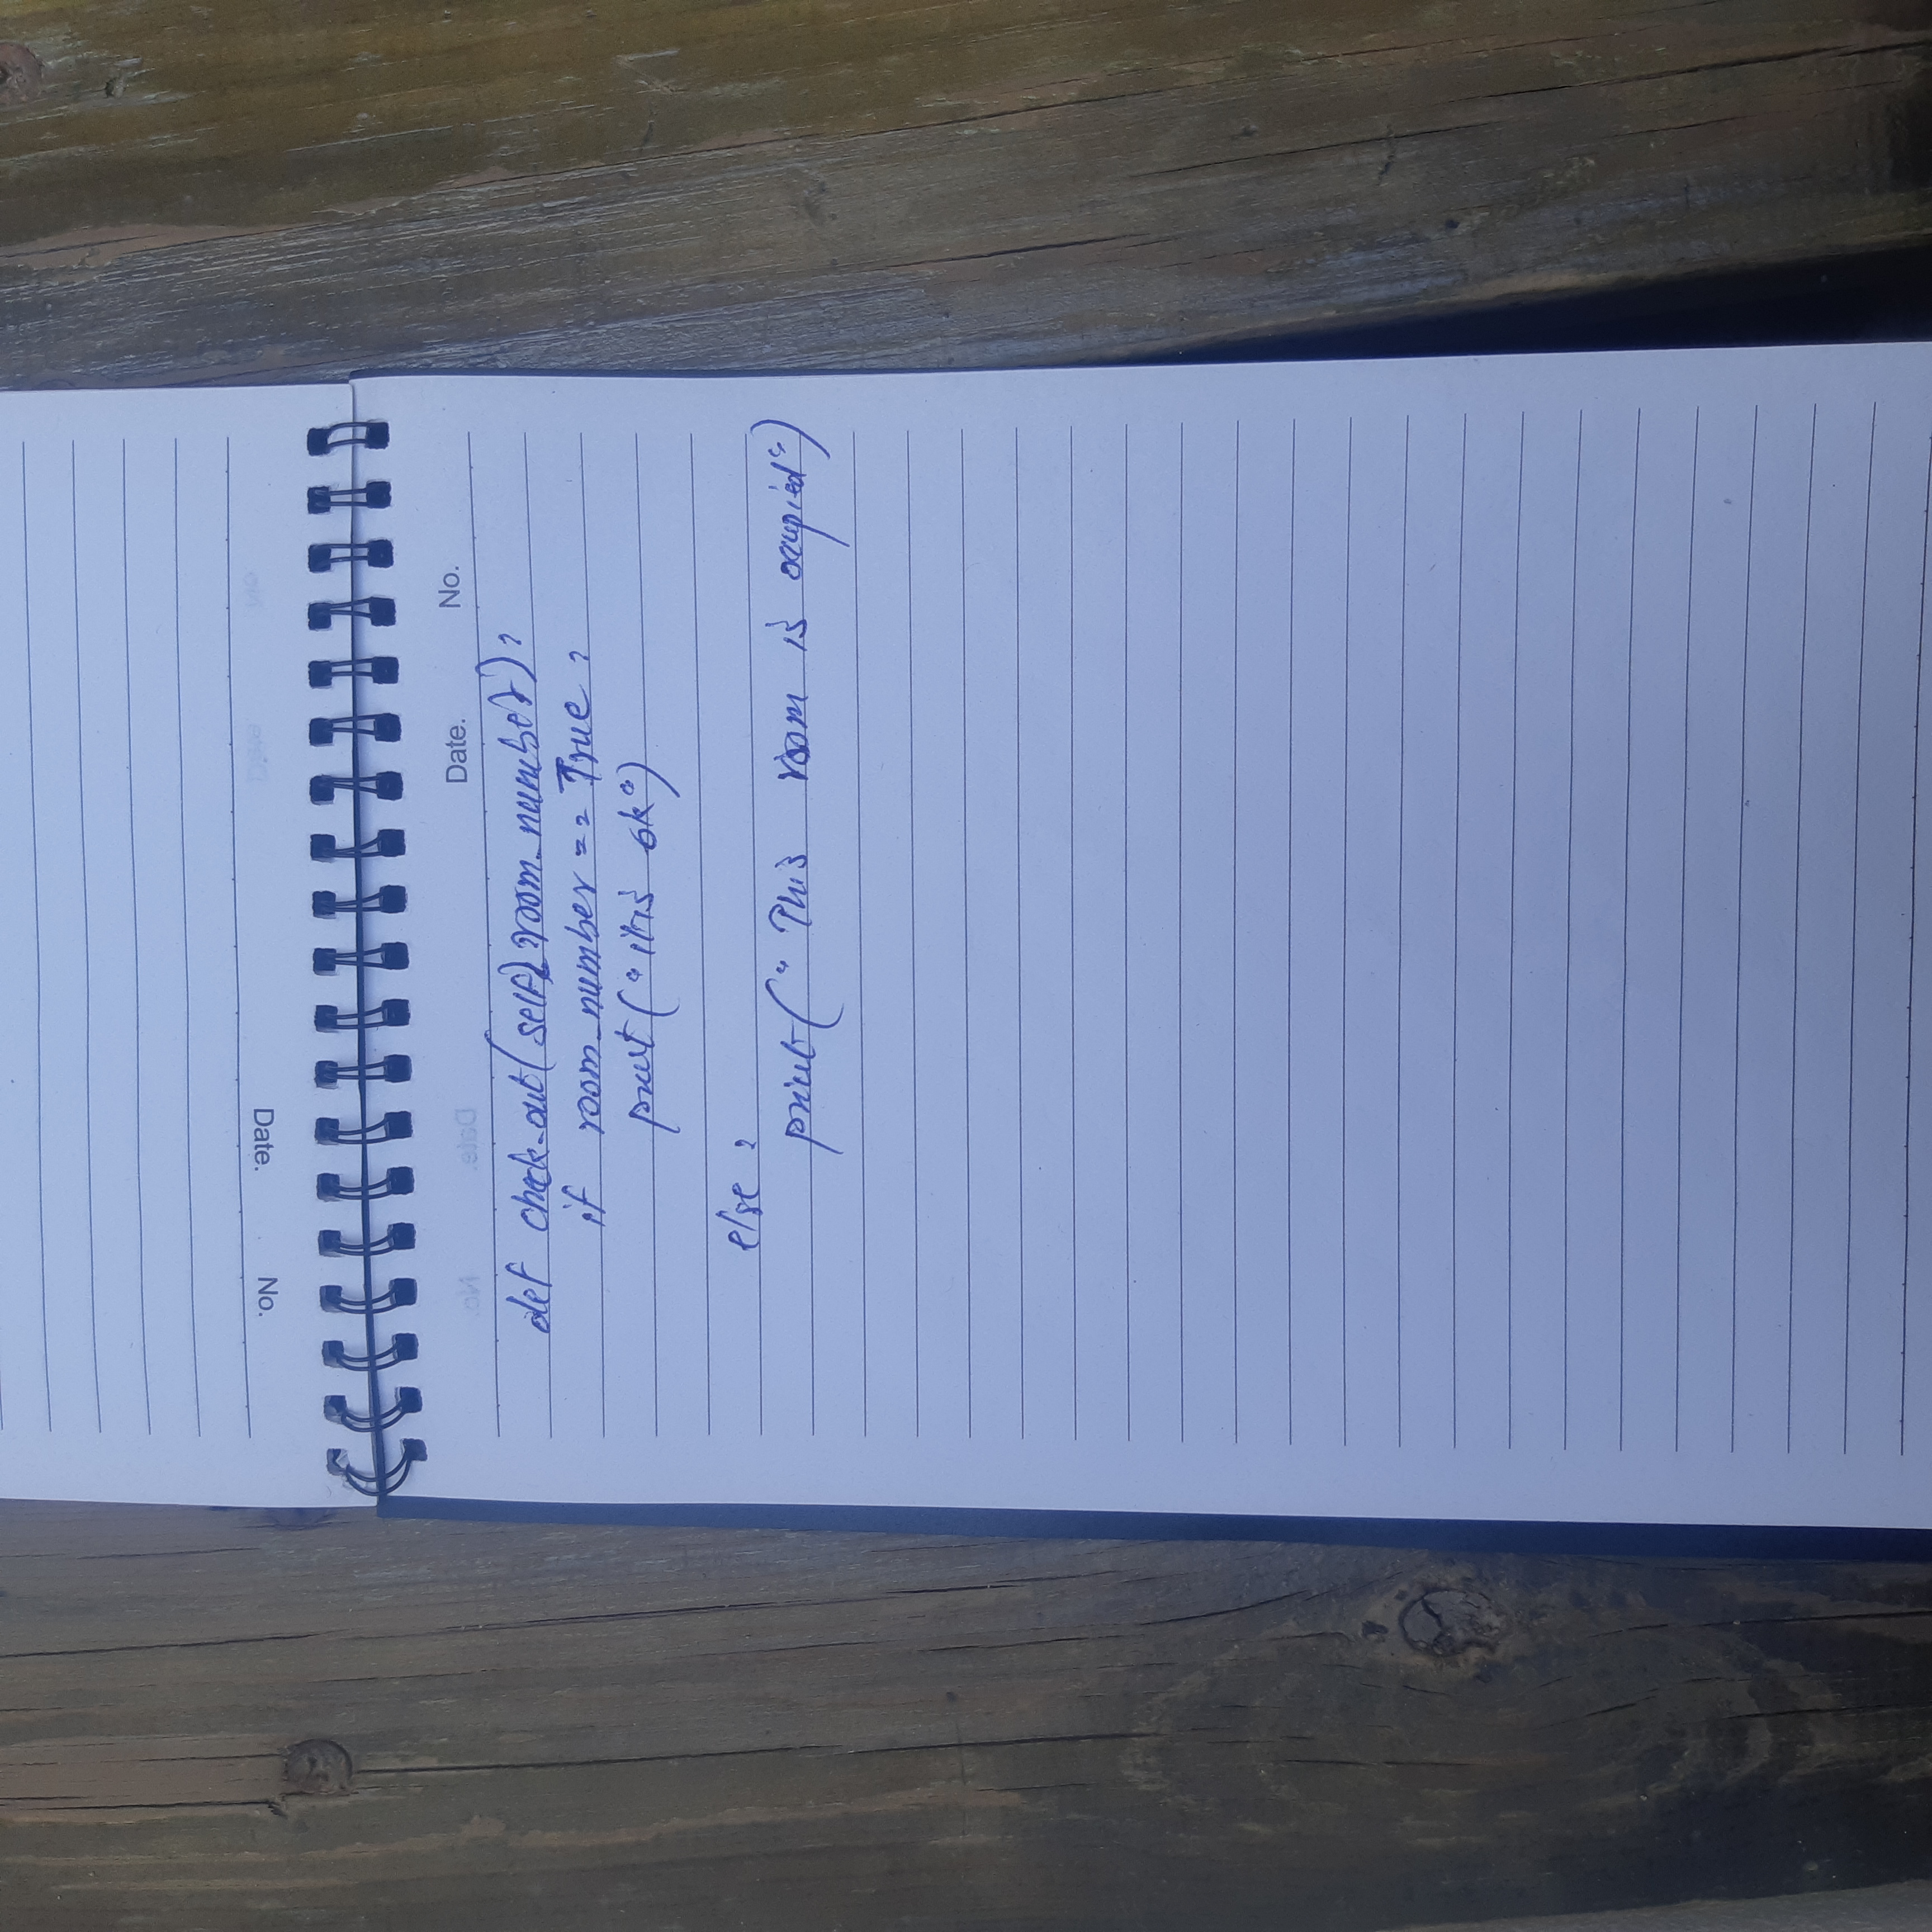 Date. No.
def check_out(self, room_number):
if room_number == True:
print("it is ok")
else:
print("This room is occupied")
No. Date.